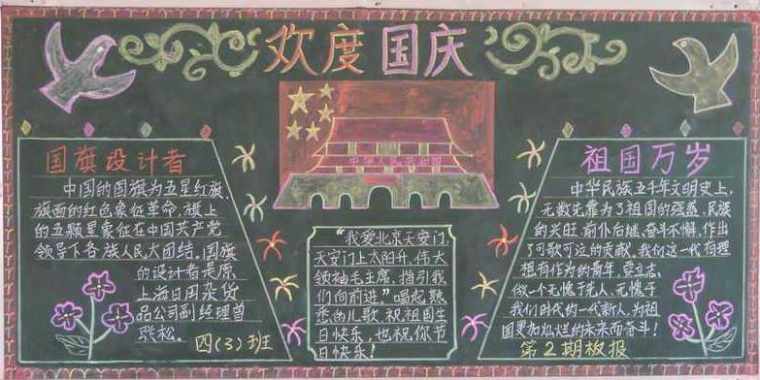 欢度国庆
国旗设计者
中国的国旗为五星红旗,
旗面的红色象征革命.旗上
的五颗星象征在中国共产党
领导下各族人民大团结.国旗
的设计者是原
上海日用杂货
品公司副经理曾
联松。
四(3)班
中华人民共和国
"我爱北京天安门,
天安门上太阳升,伟大
领袖毛主席,指引我
们向前进"唱起熟
悉的儿歌,祝祖国生
日快乐,也祝你节
日快乐!
祖国万岁
中华民族五千年文明史上,
无数先辈为了祖国的强盛,民族
的兴旺前仆后继,奋斗不懈,作出
了可歌可泣的贡献,我们这一代有理
想有作为的青年,要立志,
做一个无愧于先人、无愧于
我们时代的一代新人,为祖
国更加灿烂的未来而奋斗!
第2期板报